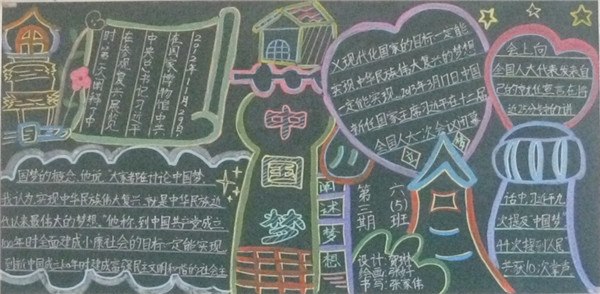 2012年11月29日
在国家博物馆中共
中央总书记习近平
在参观复兴展览
时第一次阐释了中
国梦的概念。他说:"大家都在讨论中国梦
我认为实现中华民族伟大复兴,就是中华民族近
代以来最伟大的梦想。"他称,到中国共产党成立
100年时全面建成小康社会的目标一定能实现
到新中国成立100年时建成富强民主文明和谐的社会主
中
国
梦
义现代化国家的目标一定能
实现中华民族伟大复兴的梦想
一定能实现。2013年3月17日中国
新任国家主席习近平在十二届
全国人大一次会议闭幕
会上向
全国人大代表发表自
近25分钟的讲
话中,习近平九
次提及"中国梦"
44次提到人民
共获10次掌声
阐述梦想
第二期
六(5)班
设计:
绘画:
书写:张家伟